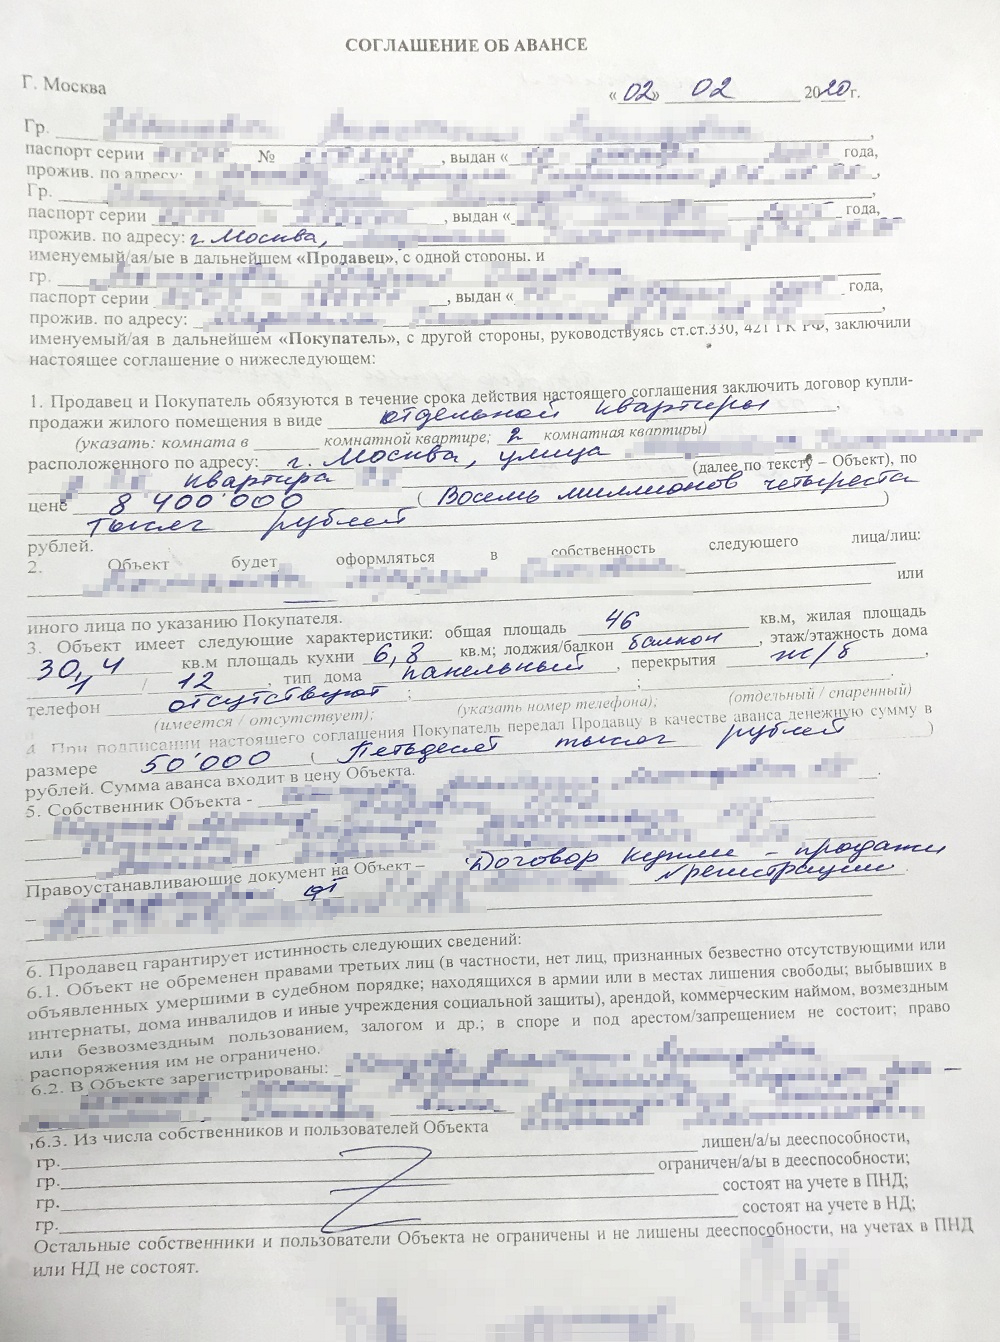 СОГЛАШЕНИЕ ОБ АВАНСЕ
Г. Москва «02» 02 2020г.
Гр. ,
паспорт серии № , выдан « года,
прожив. по адресу: ,
Гр. ,
паспорт серии , выдан « года,
прожив. по адресу: г. Москва,
именуемый/ая/ые в дальнейшем «Продавец», с одной стороны, и
гр.
паспорт серии , выдан « года,
прожив. по адресу: ,
именуемый/ая в дальнейшем «Покупатель», с другой стороны, руководствуясь ст.ст.330, 421 ГК РФ, заключили
настоящее соглашение о нижеследующем:
1. Продавец и Покупатель обязуются в течение срока действия настоящего соглашения заключить договор купли-
продажи жилого помещения в виде отдельной квартиры ,
(указать: комната в комнатной квартире; 2 комнатная квартиры)
расположенного по адресу: г. Москва, улица
квартира (далее по тексту – Объект), по
цене 8 400'000 ( Восемь миллионов четыреста
тысяч рублей )
рублей.
2. Объект будет оформляться в собственность следующего лица/лиц:
или
иного лица по указанию Покупателя.
3. Объект имеет следующие характеристики: общая площадь 46 кв.м, жилая площадь
30,4 кв.м площадь кухни 6,8 кв.м; лоджия/балкон балкон , этаж/этажность дома
1 / 12 , тип дома панельный , перекрытия ж/б ,
телефон отсутствует ; ; .
(имеется / отсутствует); (указать номер телефона); (отдельный / спаренный)
4. При подписании настоящего соглашения Покупатель передал Продавцу в качестве аванса денежную сумму в
размере 50'000 ( Петьдесят тысяч рублей )
рублей. Сумма аванса входит в цену Объекта.
5. Собственник Объекта - .
Правоустанавливающие документ на Объект – Договор купли - продажи
от регистрации
6. Продавец гарантирует истинность следующих сведений:
6.1. Объект не обременен правами третьих лиц (в частности, нет лиц, признанных безвестно отсутствующими или
объявленных умершими в судебном порядке; находящихся в армии или в местах лишения свободы; выбывших в
интернаты, дома инвалидов и иные учреждения социальной защиты), арендой, коммерческим наймом, возмездным
или безвозмездным пользованием, залогом и др.; в споре и под арестом/запрещением не состоит; право
распоряжения им не ограничено.
6.2. В Объекте зарегистрированы:
6.3. Из числа собственников и пользователей Объекта
гр. лишен/а/ы дееспособности,
гр. ограничен/а/ы в дееспособности;
гр. состоят на учете в ПНД;
гр. состоят на учете в НД;
Остальные собственники и пользователи Объекта не ограничены и не лишены дееспособности, на учетах в ПНД
или НД не состоят.